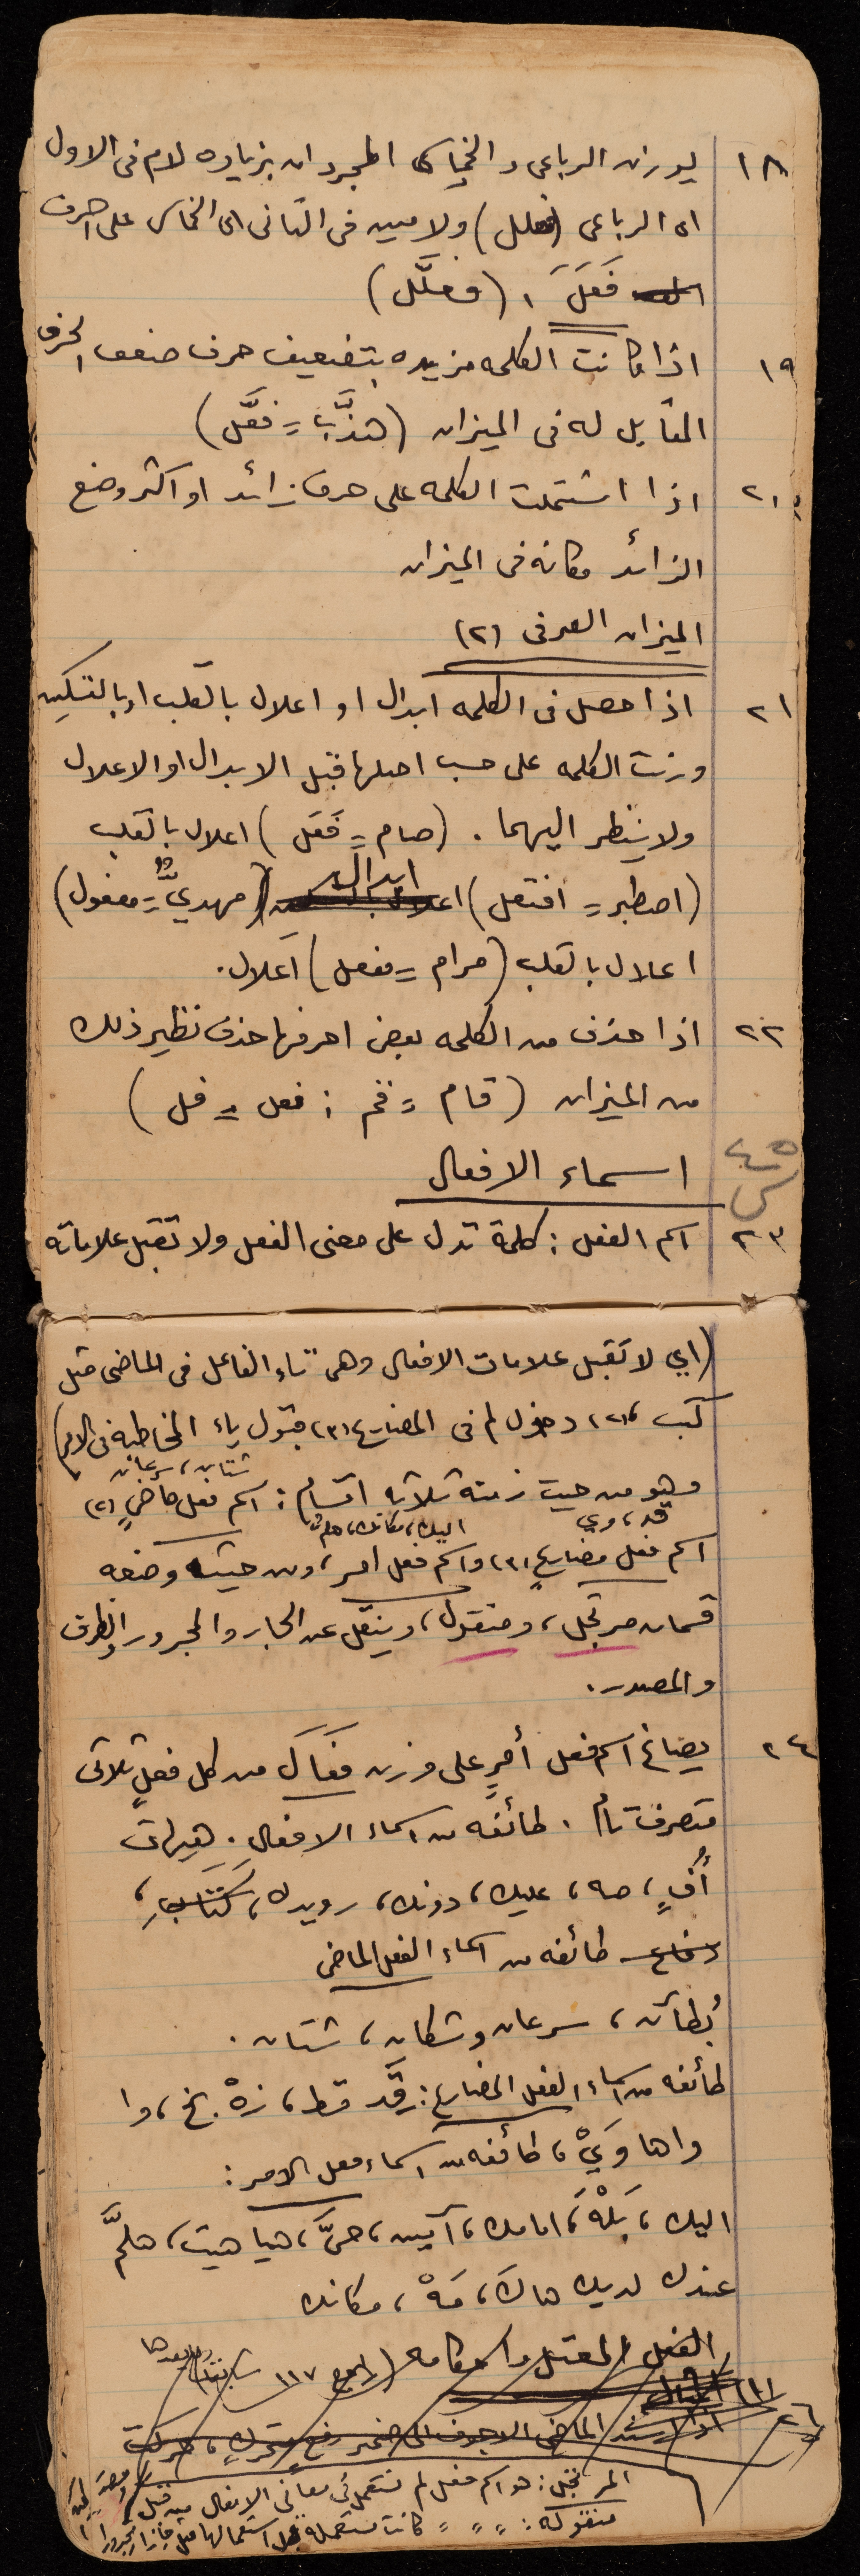 ١٨ يوزن الرباعى والخماسى المجردان بزياده لام فى الاول
اى الرباعى (فعلل) ولامين فى الثانى اى الخماسى على احرف
فَعَلَ ، (فعلَّل)
١٩ اذا كانت الكلمه مزيده بتضعيف حرف ضعف الحرف
المقابل له فى الميزان (هذَّب = فعَّل)
٢٠ اذا اشتملت الكلمه على حرف زائد او اكثر وضع
الزائد مكانه فى الميزان
الميزان الصرفى (٢)
٢١ اذا حصل فى الكلمه ابدال او اعلال بالقلب او بالتسكين
وزنت الكلمه على حسب اصلها قبل الابدال او الاعلال
ولا ينظر اليهما . (صام = فَعَل) اعلال بالقلب
(اصطبر = افتعل) ابدال (مهديٌّ = مفعول)
اعلال بالقلب (مرام = مفعل) اعلال .
٢٢ اذا حذف من الكلمه بعض احرفها حذف نظير ذلك
من الميزان (قام = قم : فعل = فل)
اسماء الافعال
٢٣ اسم الفعل : كلمة تدل على معنى الفعل ولا تقبل علاماته
(اي لا تقبل علامات الافعال وهى تاء الفاعل فى الماضى مثل
كتب ، (٢) دخول لم فى المضارع (٣) قبول ياء المخاطبه فى الامر)
شتان ، سرعان
وهو من حيث زمنه ثلاثه اقسام : اسم فعل ماضٍ (٢)
قد ، وي اليك ، مكانك ، هلم
اسم فعل مضارع (٣) واسم فعل امر ، ومن حيث وضعه
قسمان مرتجل ، ومنقول ، وينقل عن الجار والمجرور والظرف
والمصدر .
٢٤ يصاغ اسم فعل أمرٍ على وزن فَعَالَ من كل فعلٍ ثلاثى
متصرف تام . طائفه من اسماء الافعال . هيهات
أُفٍ ، صه ، عليك ، دونك ، رويدك ، كَتَابِ ،
طائفه من اسماء الفعل الماضى
بُطآن ، سرعان وشكان ، شتان .
طائفه من اسماء الفعل المضارع : قَد قط ، زهْ بخ ، وا
واها وَيْ ، طائفه من اسماء فعل الامر :
اليك ، بَلْهَ ، امامك ، آمين ، حىَّ ، هيا هيت ، هلمَّ
عندك لديك هاكَ ، مَهْ ، مكانك
الفعل المعتل واحكامه (راجع ١١٧ سابقا) وما بعدها
(١) المثال
٢٦ اذا اسند الماضى الاجوف الى ضمير رفع متحرك ، حركت
المرتجل : هو اسم فعل لم تستعمل فى معانى الافعال من قبل
منقوله : " " " كانت مستعمله قبل استعمالها